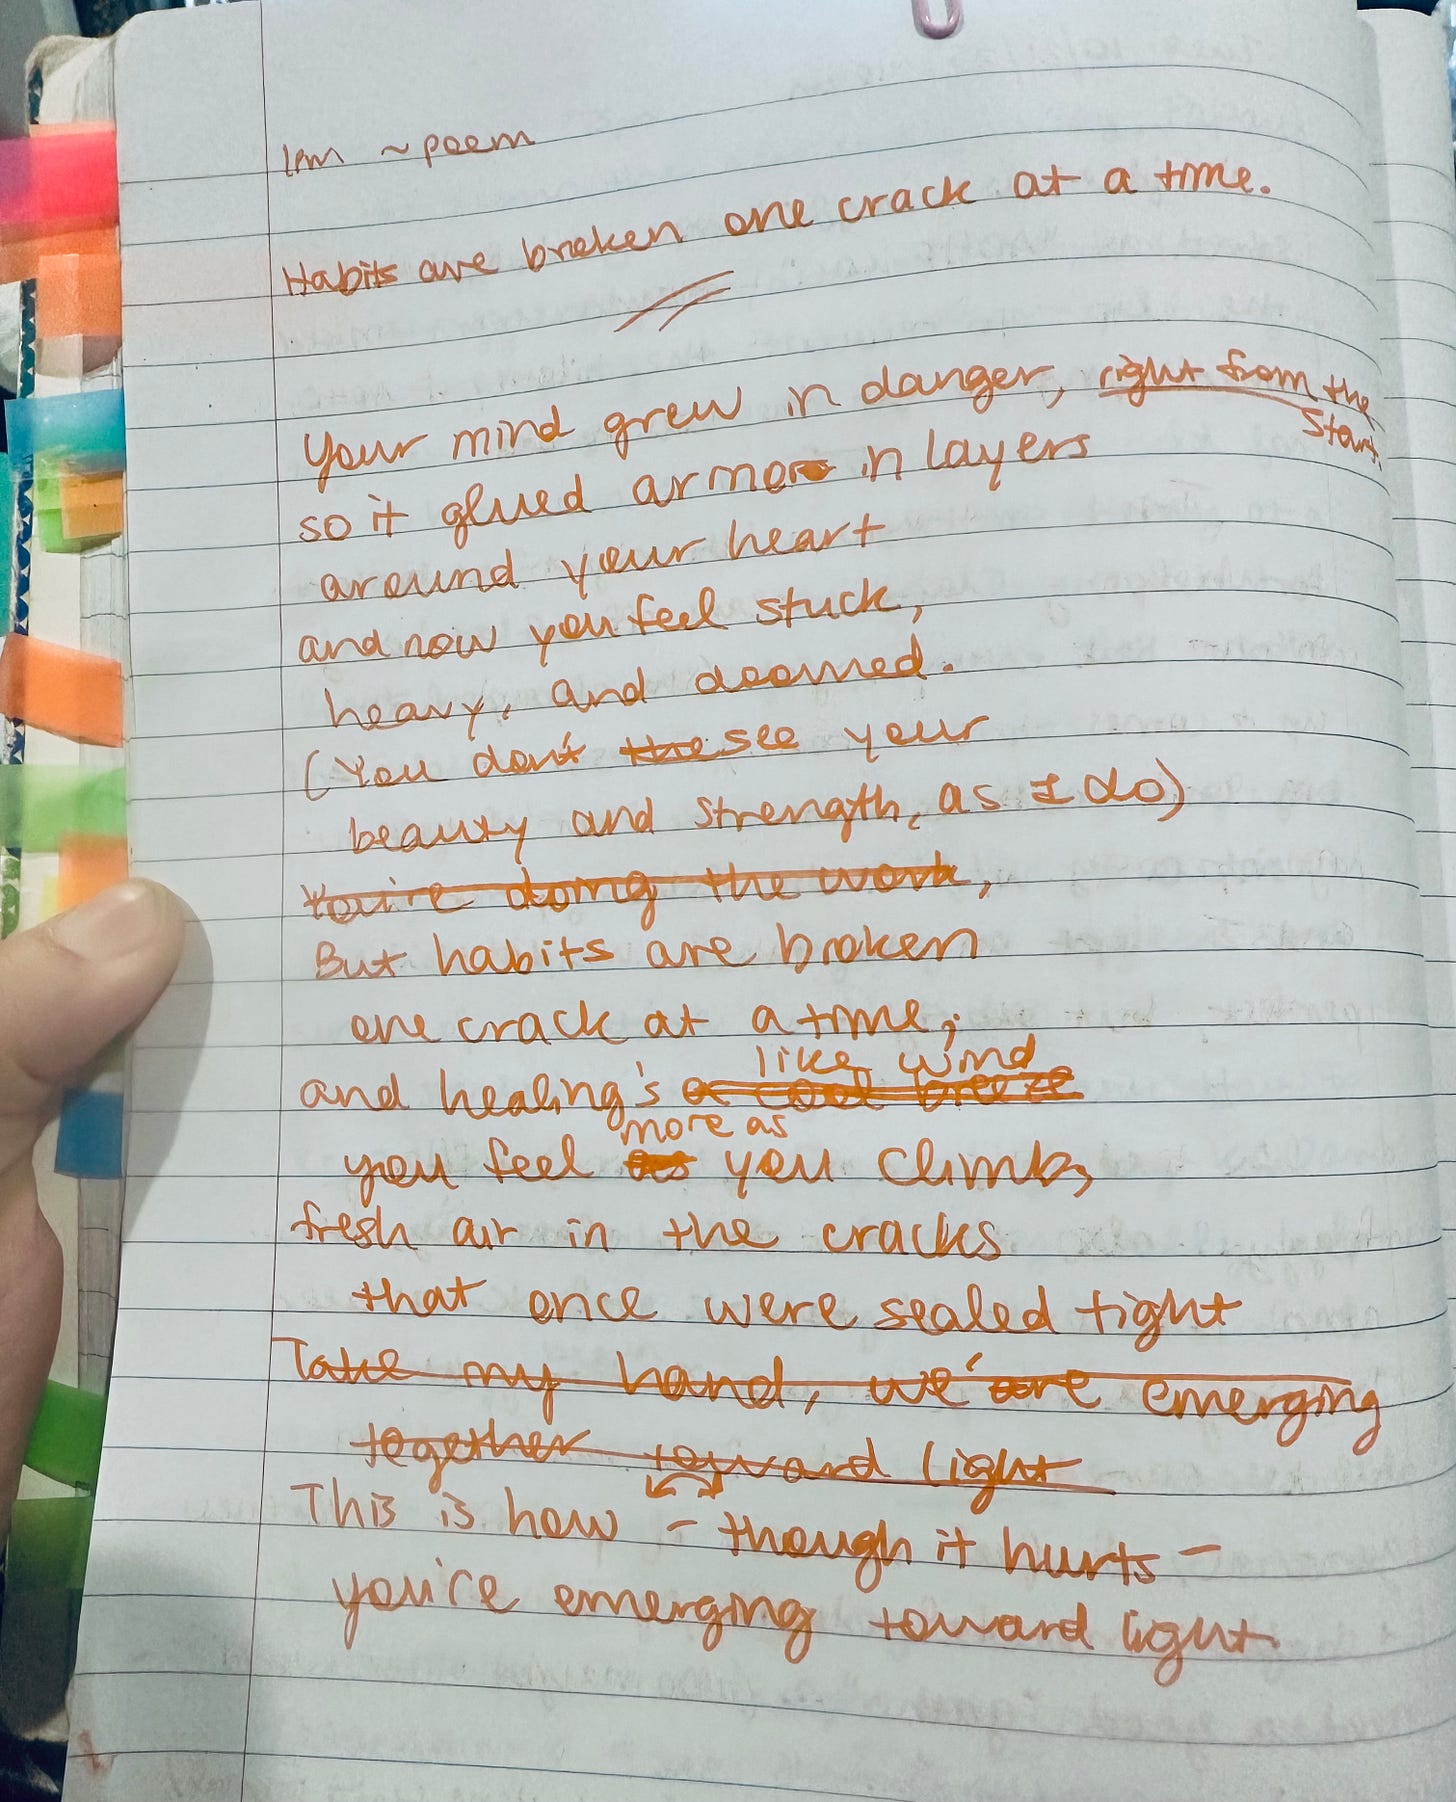 1pm ~ poem
Habits are broken one crack at a time.
Your mind grew in danger, right from the
start.
so it glued armor in layers
around your heart
and now you feel stuck,
heavy, and doomed.
(You don't the see your
beauty and strength, as I do)
You're doing the work,
But habits are broken
one crack at a time,
like wind
and healing's a cool breeze
more as
you feel as you climb,
fresh air in the cracks
that once were sealed tight
Take my hand, we're emerging
together toward light
This is how – though it hurts –
you're emerging toward light